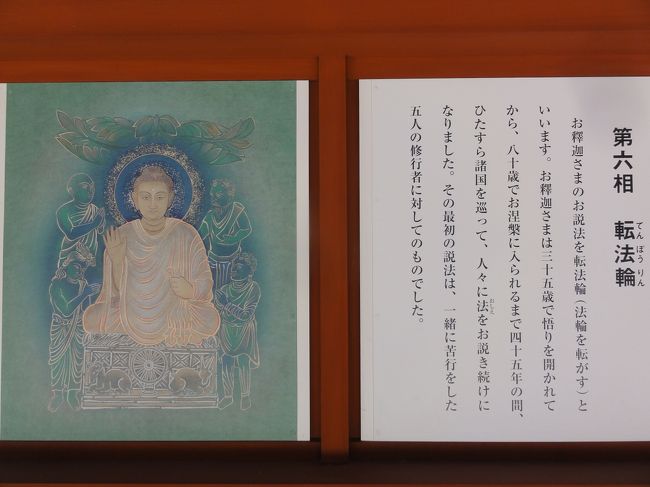 第六相 転法輪
てんぽうりん
お釋迦さまのお説法を転法輪（法輪を転がす）と
いいます。お釋迦さまは三十五歳で悟りを開かれて
から、八十歳でお涅槃に入られるまで四十五年の間、
ひたすら諸国を巡って、人々に法をお説き続けに
おしえ
なりました。その最初の説法は、一緒に苦行をした
五人の修行者に対してのものでした。